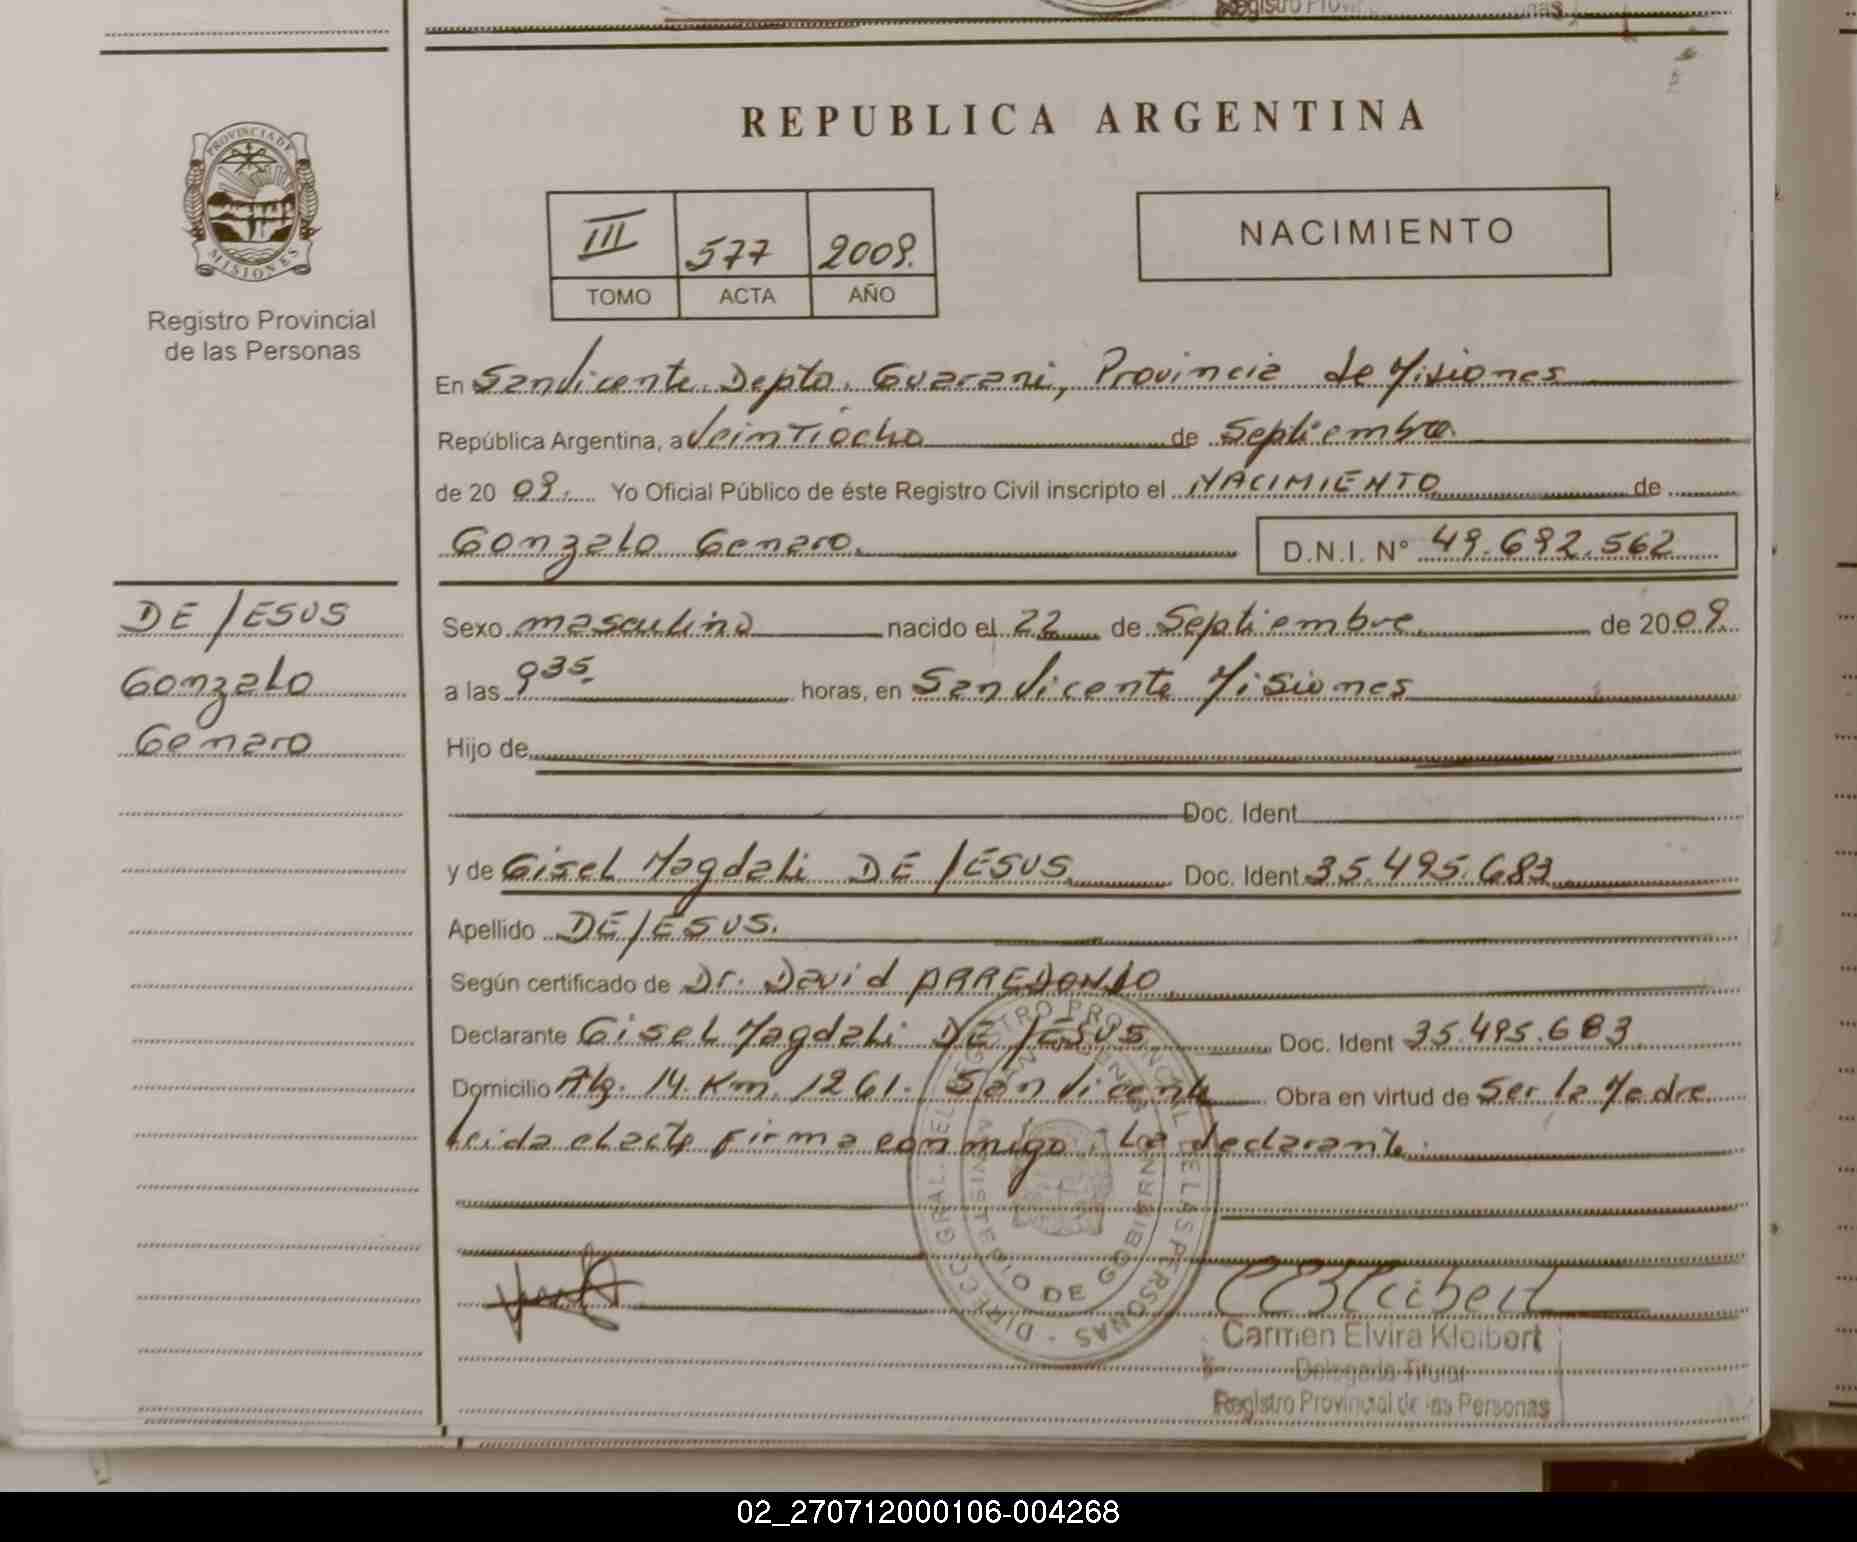 Registro Provin
REPUBLICA ARGENTINA
PROVINCIA DE
MISIONES
Registro Provincial
de las Personas
III 577 2009.
TOMO ACTA AÑO
NACIMIENTO
En San Vicente Depto. Guarani, Provincia de Misiones
República Argentina, a Veintiocho de Septiembre
de 20 09. Yo Oficial Público de éste Registro Civil inscripto el NACIMIENTO de
Gonzalo Genaro. D.N.I. N° 49.692.562
DE JESUS
Gonzalo
Genaro
Sexo masculino nacido el 22 de Septiembre de 2009.
a las 9 35 horas, en San Vicente Misiones
Hijo de
Doc. Ident.
y de Gisel Magdali DE JESUS Doc. Ident. 35.495.683
Apellido DE JESUS.
Según certificado de Dr. David ARREDONDO
Declarante Gisel Magdali DE JESUS Doc. Ident 35.495.683
Domicilio 14. Km. 1261. San Vicente Obra en virtud de Ser la Madre
leida el acta firma conmigo. La declarante.
Carmen Elvira Kleibert
Delegada Titular
Registro Provincial de las Personas
02_270712000106-004268